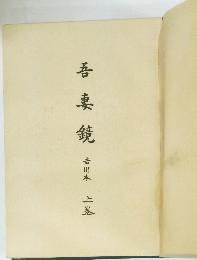 吾妻鏡
吉川本
上巻